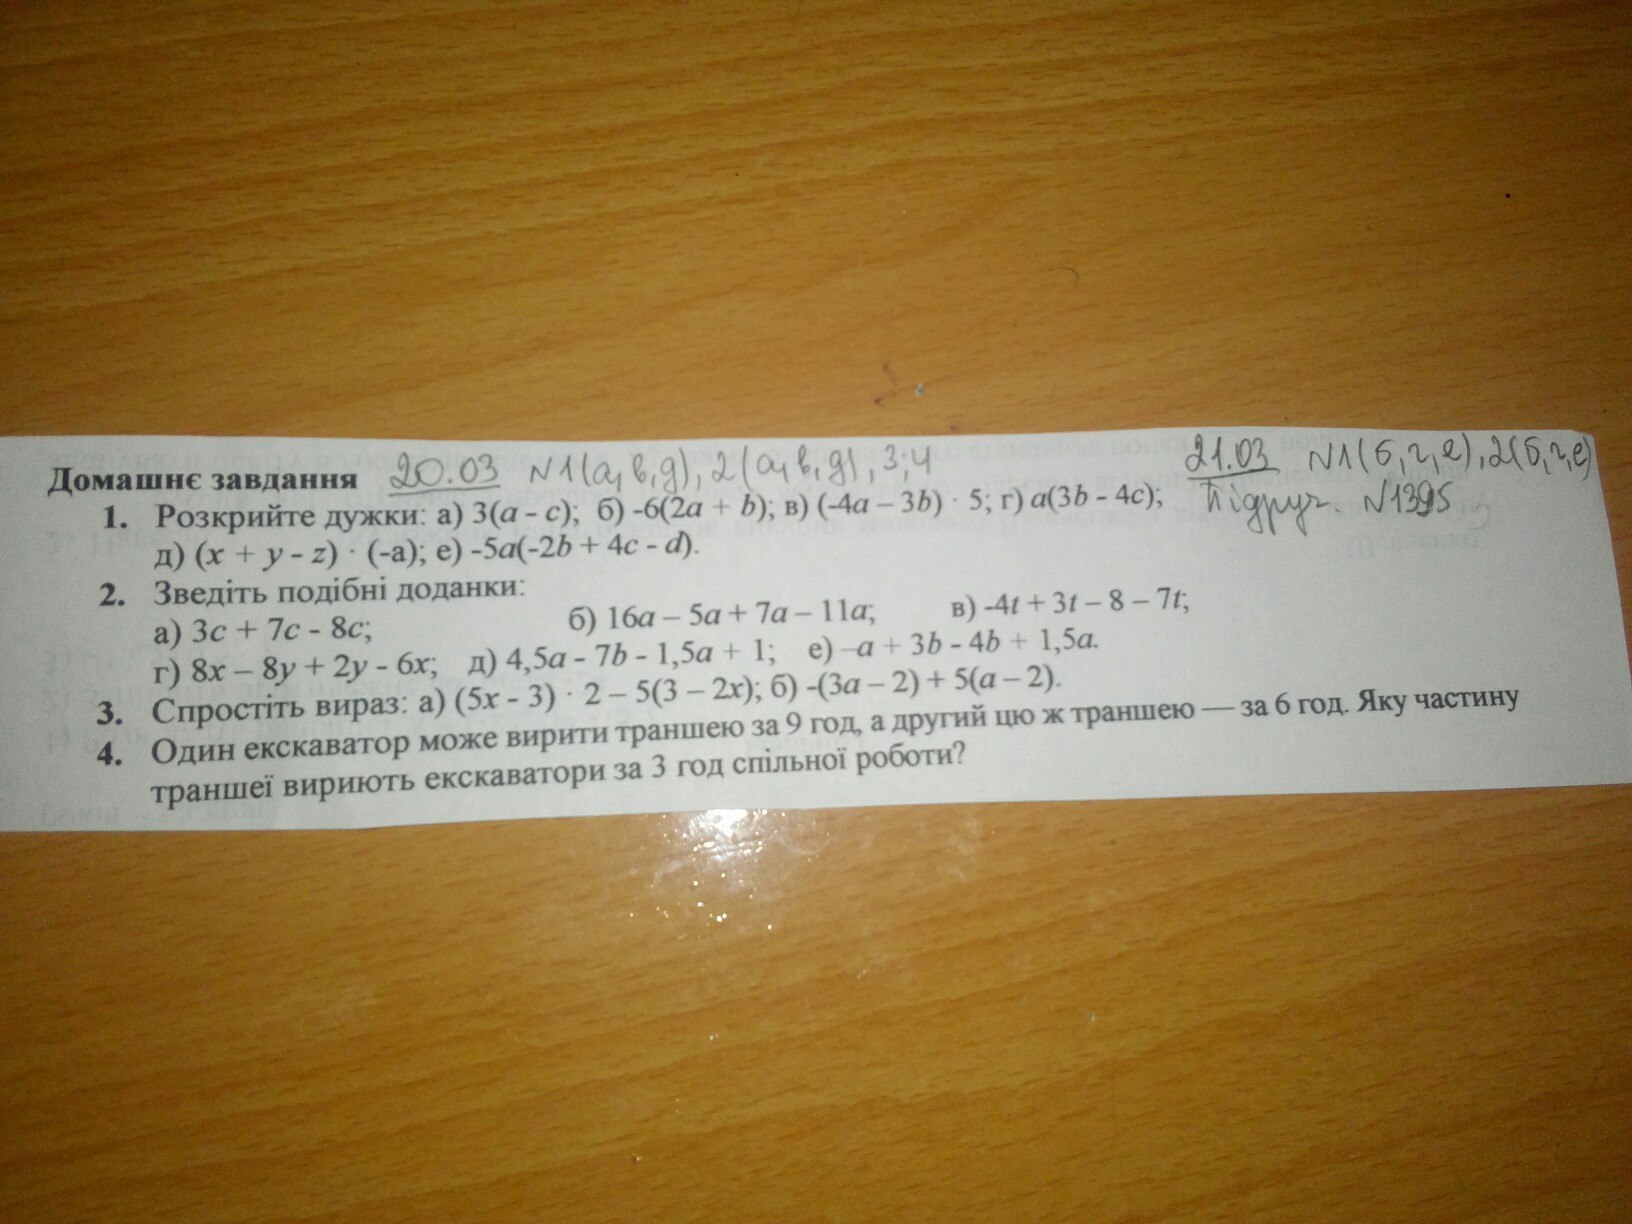 Домашнє завдання 20.03 №1(а,в,д), 2(а,в,д), 3; 4 21.03 №1(б,г,е), 2(б,г,е)
Підруч. №1395
1. Розкрийте дужки: а) 3(a - c); б) -6(2a + b); в) (-4a – 3b) · 5; г) a(3b - 4c);
д) (x + y - z) · (-a); е) -5a(-2b + 4c - d).
2. Зведіть подібні доданки:
а) 3c + 7c - 8c; б) 16a – 5a + 7a – 11a; в) -4t + 3t – 8 – 7t;
г) 8x – 8y + 2y - 6x; д) 4,5a - 7b - 1,5a + 1; е) –a + 3b - 4b + 1,5a.
3. Спростіть вираз: а) (5x - 3) · 2 – 5(3 – 2x); б) -(3a – 2) + 5(a – 2).
4. Один екскаватор може вирити траншею за 9 год, а другий цю ж траншею — за 6 год. Яку частину
траншеї вириють екскаватори за 3 год спільної роботи?